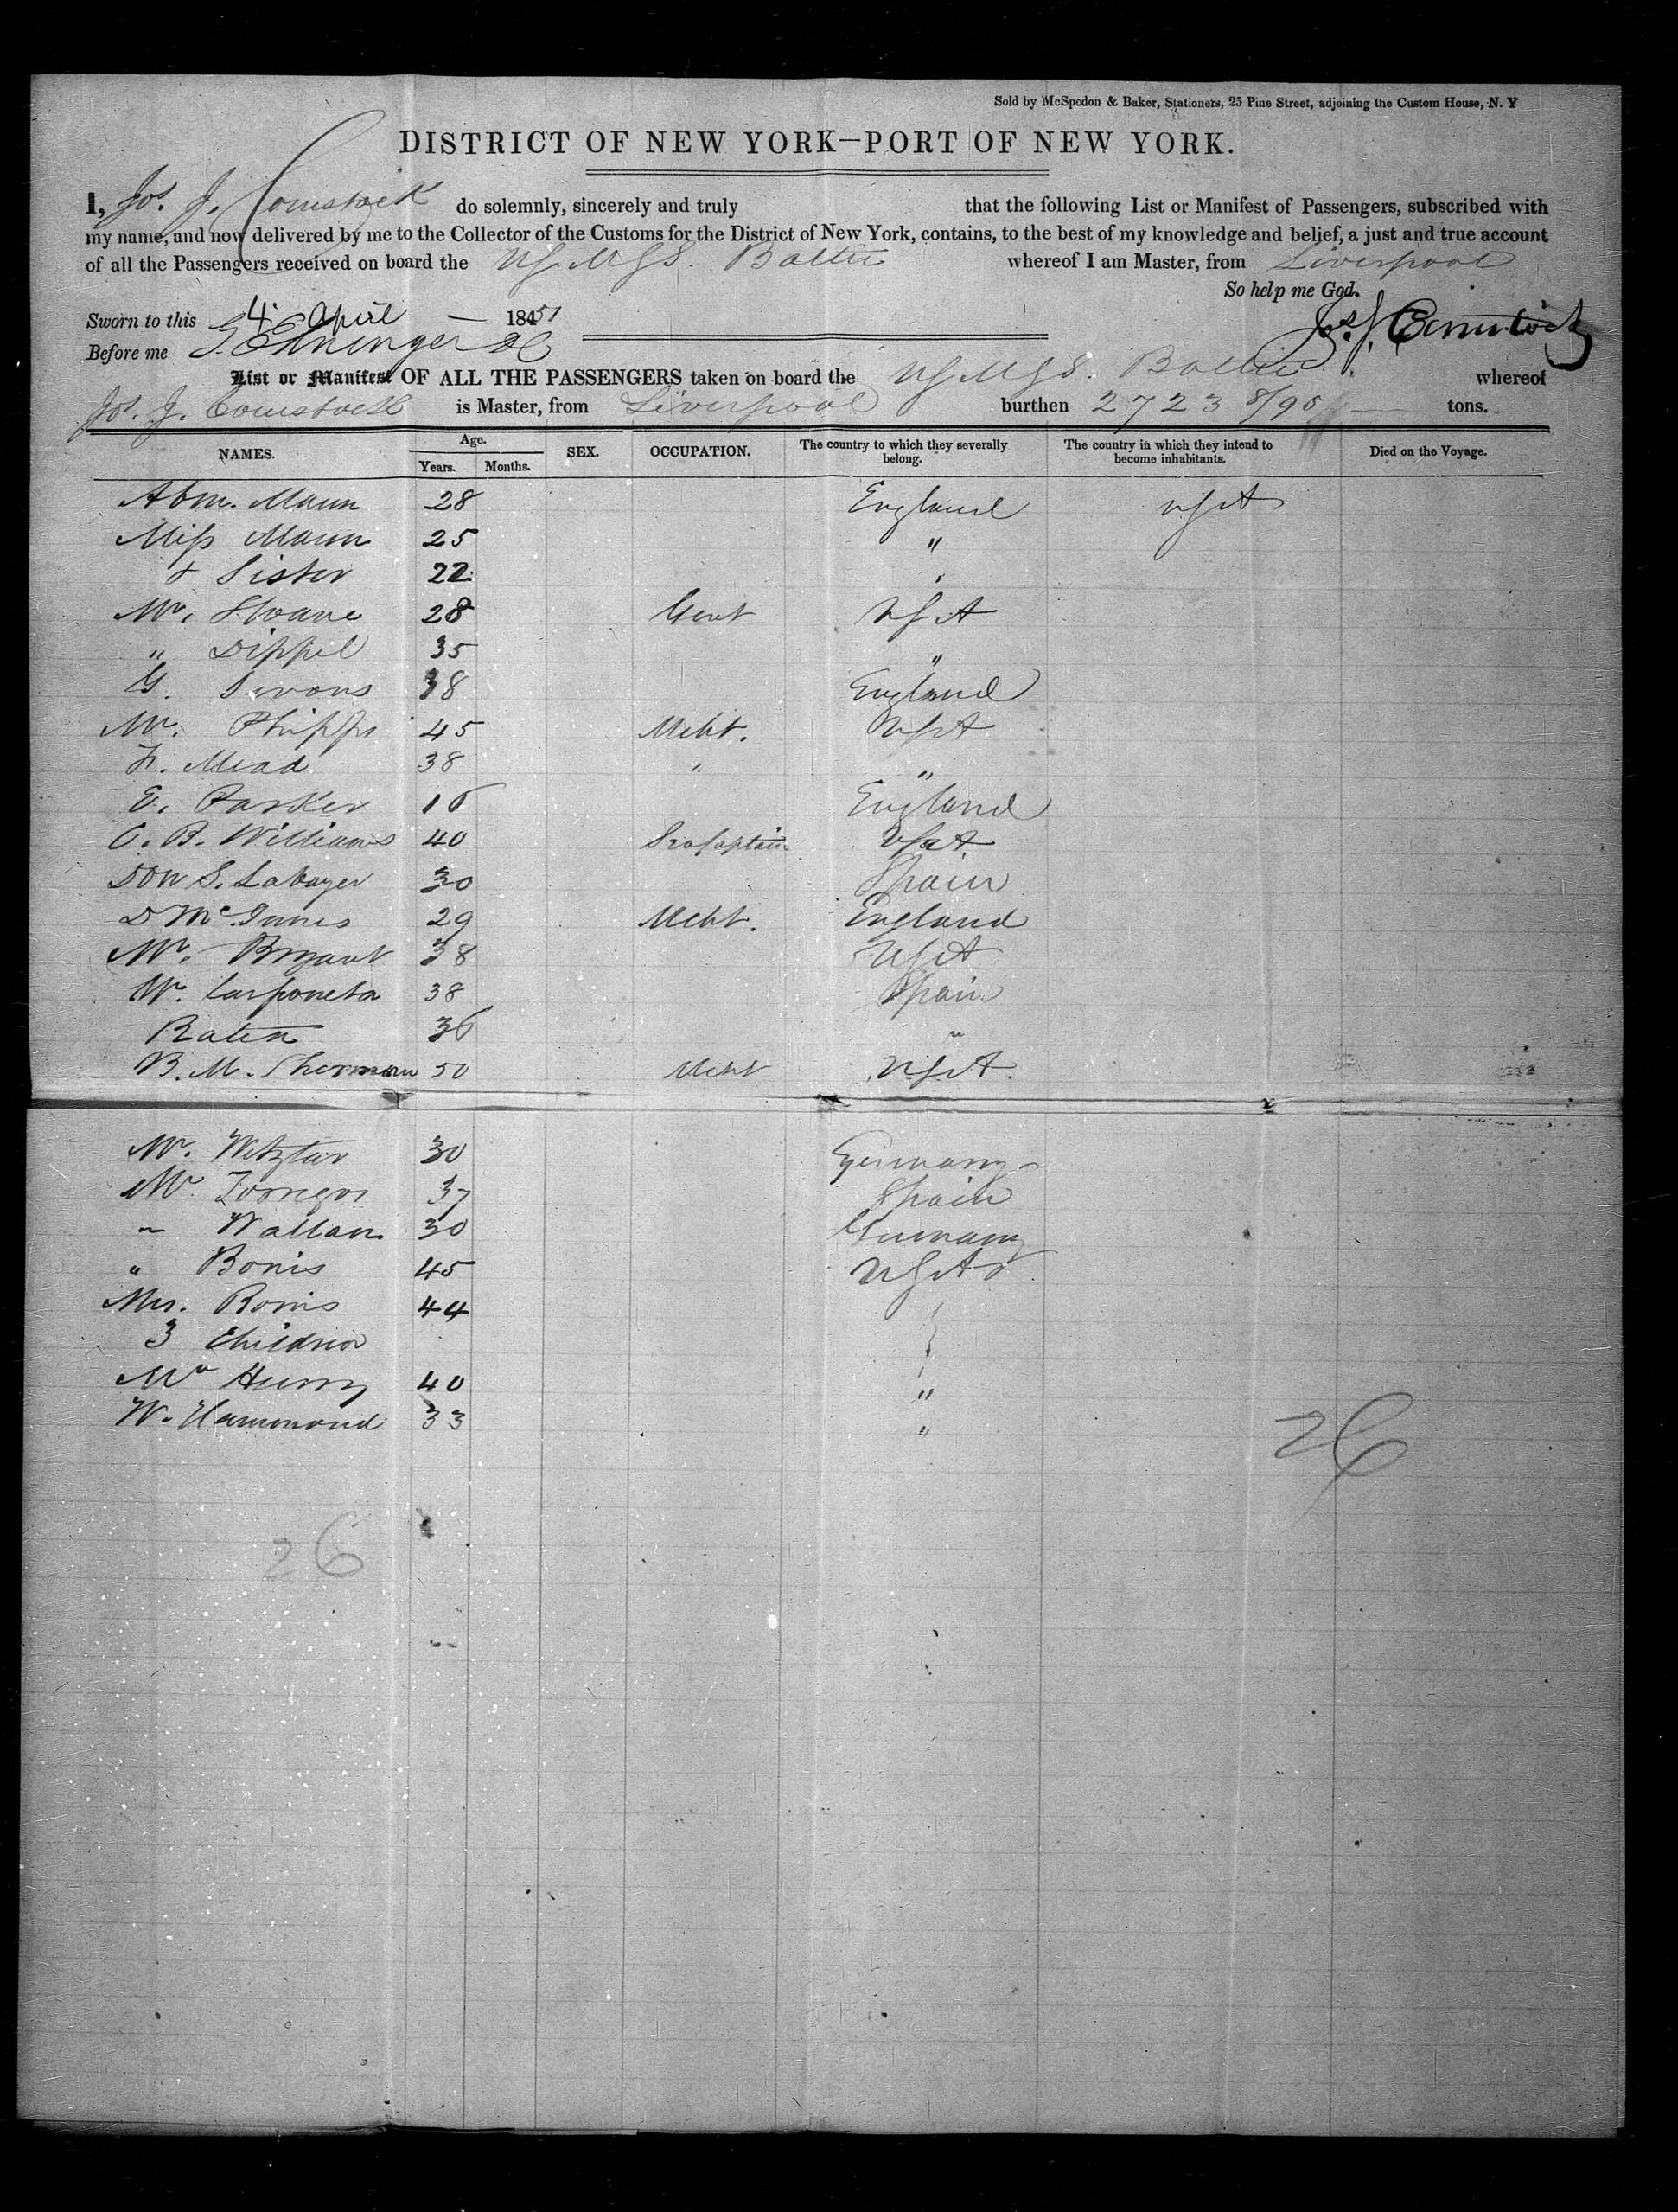 Sold by McSpedon & Baker, Stationers, 25 Pine Street, adjoining the Custom House, N. Y
DISTRICT OF NEW YORK—PORT OF NEW YORK.
I, Jos. J. Comstock do solemnly, sincerely and truly that the following List or Manifest of Passengers, subscribed with
my name, and now delivered by me to the Collector of the Customs for the District of New York, contains, to the best of my knowledge and belief, a just and true account
of all the Passengers received on board the USMSS. Baltic whereof I am Master, from Liverpool
So help me God.
Sworn to this 4 April 1851 Jos. J. Comstock
Before me
List or Manifest OF ALL THE PASSENGERS taken on board the USMSS. Baltic whereof
Jos. J. Comstock is Master, from Liverpool burthen 2723 8/95 tons.
NAMES. Age. Years. Months. SEX. OCCUPATION. The country to which they severally belong. The country in which they intend to become inhabitants. Died on the Voyage.
Abm. Mann 28 England USA
Miss Mann 25 "
& Sister 22 "
Mr. Sloane 28 Gent USA
" Dippel 35 "
G. 38 England
Mr. Phipps 45 Mcht. USA
F. Mead 38 " "
E. Parker 16 England
C. B. Williams 40 USA
Don S. Labayer 30 Spain
D McInnes 29 Mcht. England
Mr. Bryant 38 USA
W. 38 Spain
36 "
B. M. Sherman 50 Mcht USA
Mr. Wetzlar 30 Germany
Mr. 37 Spain
" 30 Germany
" Bonis 45 USA
Mrs. Bonis 44
3 Children
Mr Henry 40 "
W. Hammond 33 "
26
26